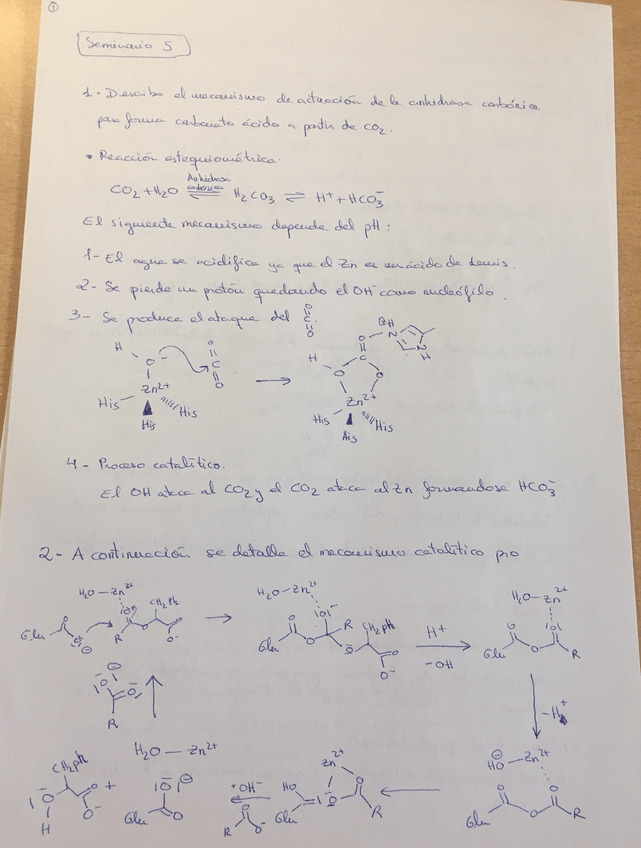 1
Seminario 5
1- Describe el mecanismo de actuación de la anhidrasa carbónica
para forma carbonato ácido a partir de CO₂.
• Reacción estequiométrica:
Anhidrasa
carbónica
CO₂ + H₂O ⇌ H₂CO₃ ⇌ H⁺ + HCO₃⁻
El siguiente mecanismo depende del pH:
1- El agua se acidifica ya que el Zn es un ácido de Lewis.
2- Se pierde un protón quedando el OH⁻ como nucleófilo.
3- Se produce el ataque del O=C=O
H O⁻ O=C=O → H O C O O N NH
Zn²⁺ Zn²⁺
His His His His His His
4- Proceso catalítico.
El OH ataca al CO₂ y el CO₂ ataca al Zn formandose HCO₃⁻
2- A continuación se detalla el mecanismo catalítico pro
H₂O-Zn²⁺ CH₂Ph → H₂O-Zn²⁺ CH₂Ph H⁺ H₂O-Zn²⁺
Glu O O⊖ R O O O⁻ Glu O O R O O O⁻ -OH Glu O O O R
O⁻ O R -H⁺
CH₂Ph H₂O — Zn²⁺ Zn²⁺ ⊖HO-Zn²⁺
O H O O⁻ + Glu O O⊖ +OH⁻ R O O⁻ HO Glu O O R Glu O O O R